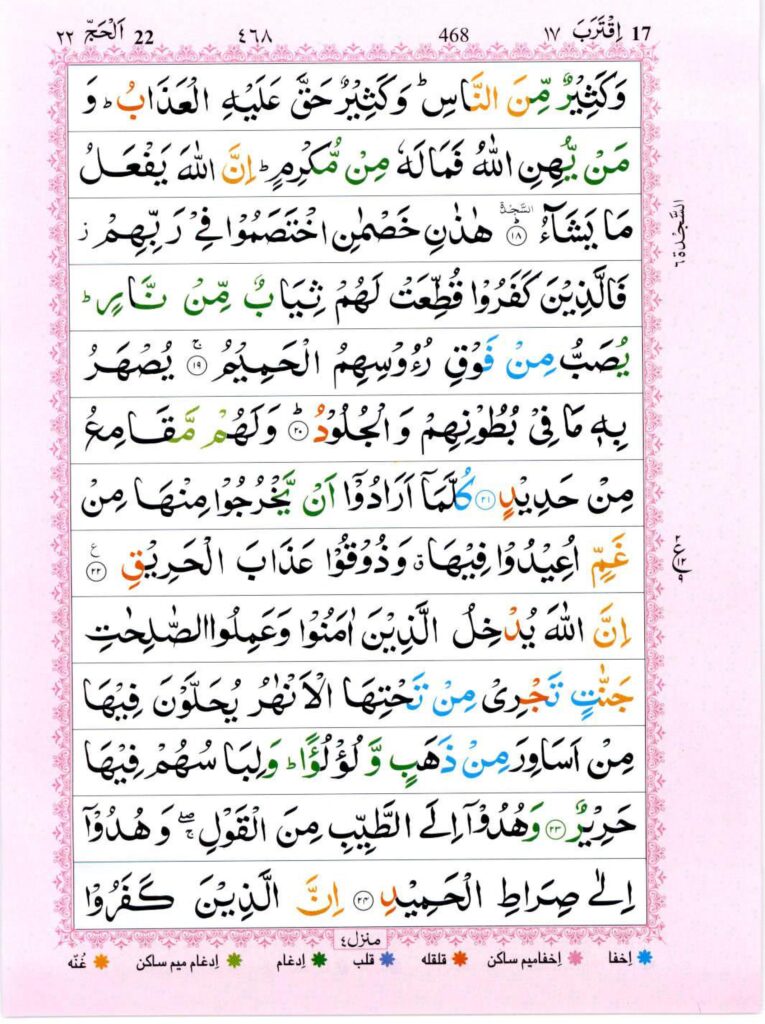 17 اِقْتَرَبَ ١٧ 468 ٤٦٨ 22 اَلْحَجّ ٢٢
وَكَثِيْرٌ مِّنَ النَّاسِ ؕ وَكَثِيْرٌ حَقَّ عَلَيْهِ الْعَذَابُ ؕ وَ
مَنْ يُّهِنِ اللّٰهُ فَمَا لَهٗ مِنْ مُّكْرِمٍ ؕ اِنَّ اللّٰهَ يَفْعَلُ
مَا يَشَآءُ ؕ السَّجْدَة ۝۱۸ هٰذٰنِ خَصْمٰنِ اخْتَصَمُوْا فِيْ رَبِّهِمْ ز
السَّجْدة ٦
فَالَّذِيْنَ كَفَرُوْا قُطِّعَتْ لَهُمْ ثِيَابٌ مِّنْ نَّارٍ ؕ
يُصَبُّ مِنْ فَوْقِ رُءُوْسِهِمُ الْحَمِيْمُ ۚ ۝۱۹ يُصْهَرُ
بِهٖ مَا فِيْ بُطُوْنِهِمْ وَالْجُلُوْدُ ؕ ۝۲۰ وَلَهُمْ مَّقَامِعُ
مِنْ حَدِيْدٍ ۝۲۱ كُلَّمَاۤ اَرَادُوْۤا اَنْ يَّخْرُجُوْا مِنْهَا مِنْ
غَمٍّ اُعِيْدُوْا فِيْهَا ۗ وَذُوْقُوْا عَذَابَ الْحَرِيْقِ ۝۲۲ ع
اِنَّ اللّٰهَ يُدْخِلُ الَّذِيْنَ اٰمَنُوْا وَعَمِلُوا الصّٰلِحٰتِ
جَنّٰتٍ تَجْرِيْ مِنْ تَحْتِهَا الْاَنْهٰرُ يُحَلَّوْنَ فِيْهَا
مِنْ اَسَاوِرَ مِنْ ذَهَبٍ وَّلُؤْلُؤًا ؕ وَلِبَاسُهُمْ فِيْهَا
حَرِيْرٌ ۝۲۳ وَهُدُوْۤا اِلَى الطَّيِّبِ مِنَ الْقَوْلِ ۖۚ وَهُدُوْۤا
اِلٰى صِرَاطِ الْحَمِيْدِ ۝۲۴ اِنَّ الَّذِيْنَ كَفَرُوْا
منزل ٤
اِخفا اِخفامیم ساکن قلقله قلب اِدغام اِدغام میم ساکن غُنّه